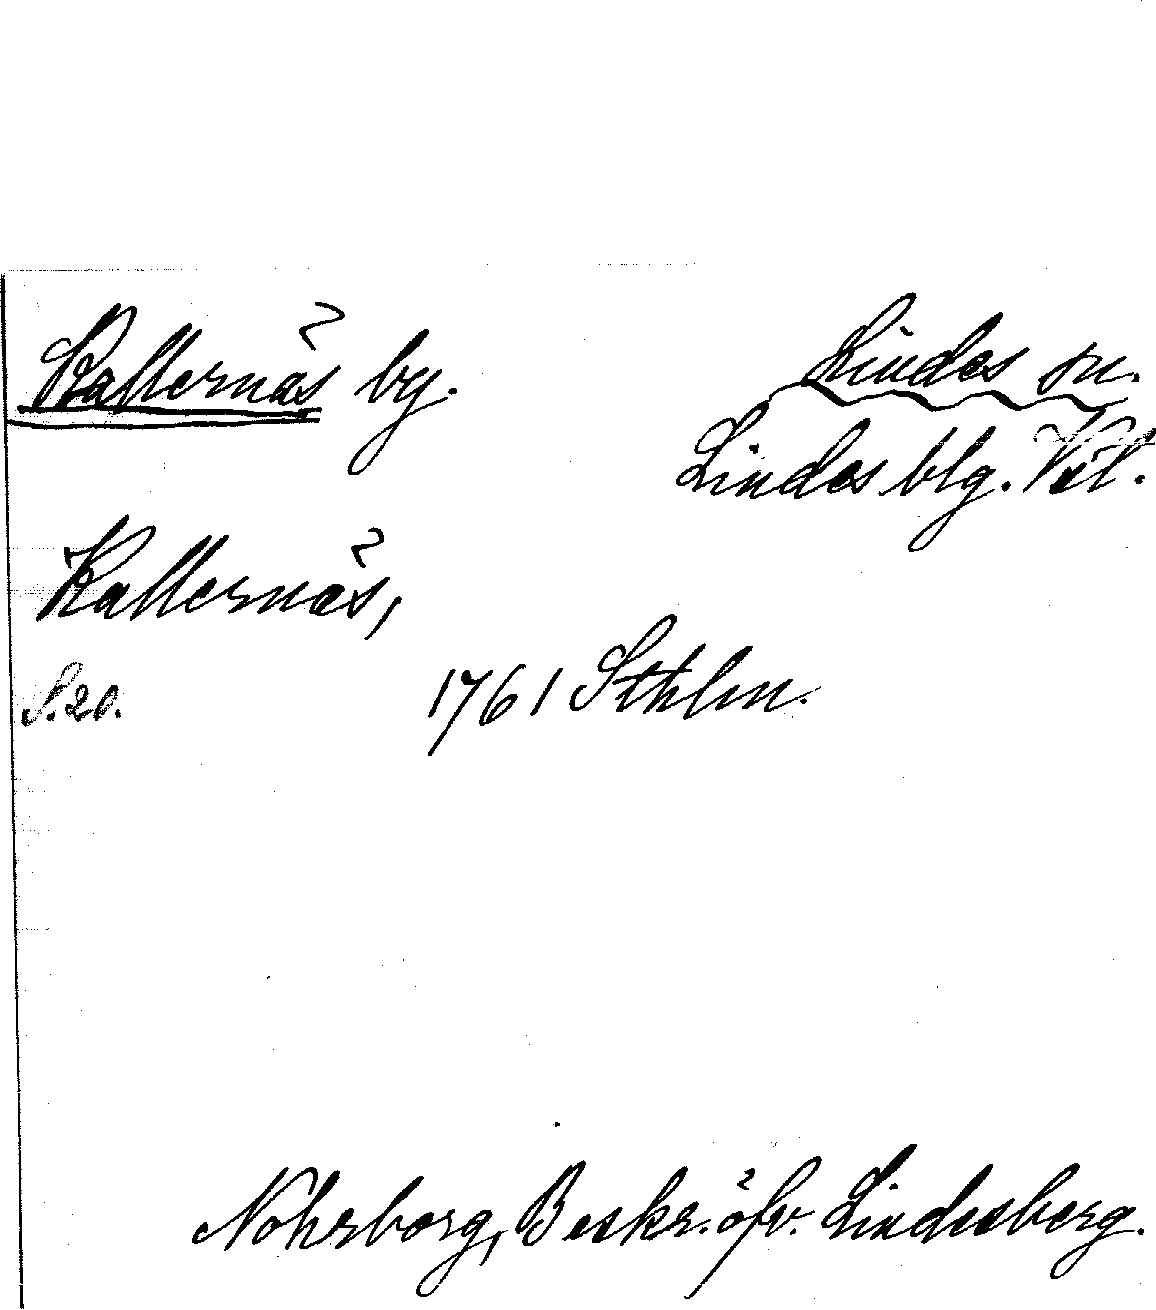 Kallernäs by.
Lindes sn.
Lindes blg. Vstl.
Kallernäs,
S. 20.
1761 Sthlm.
Nohrborg, Beskr. öfv. Lindesberg.